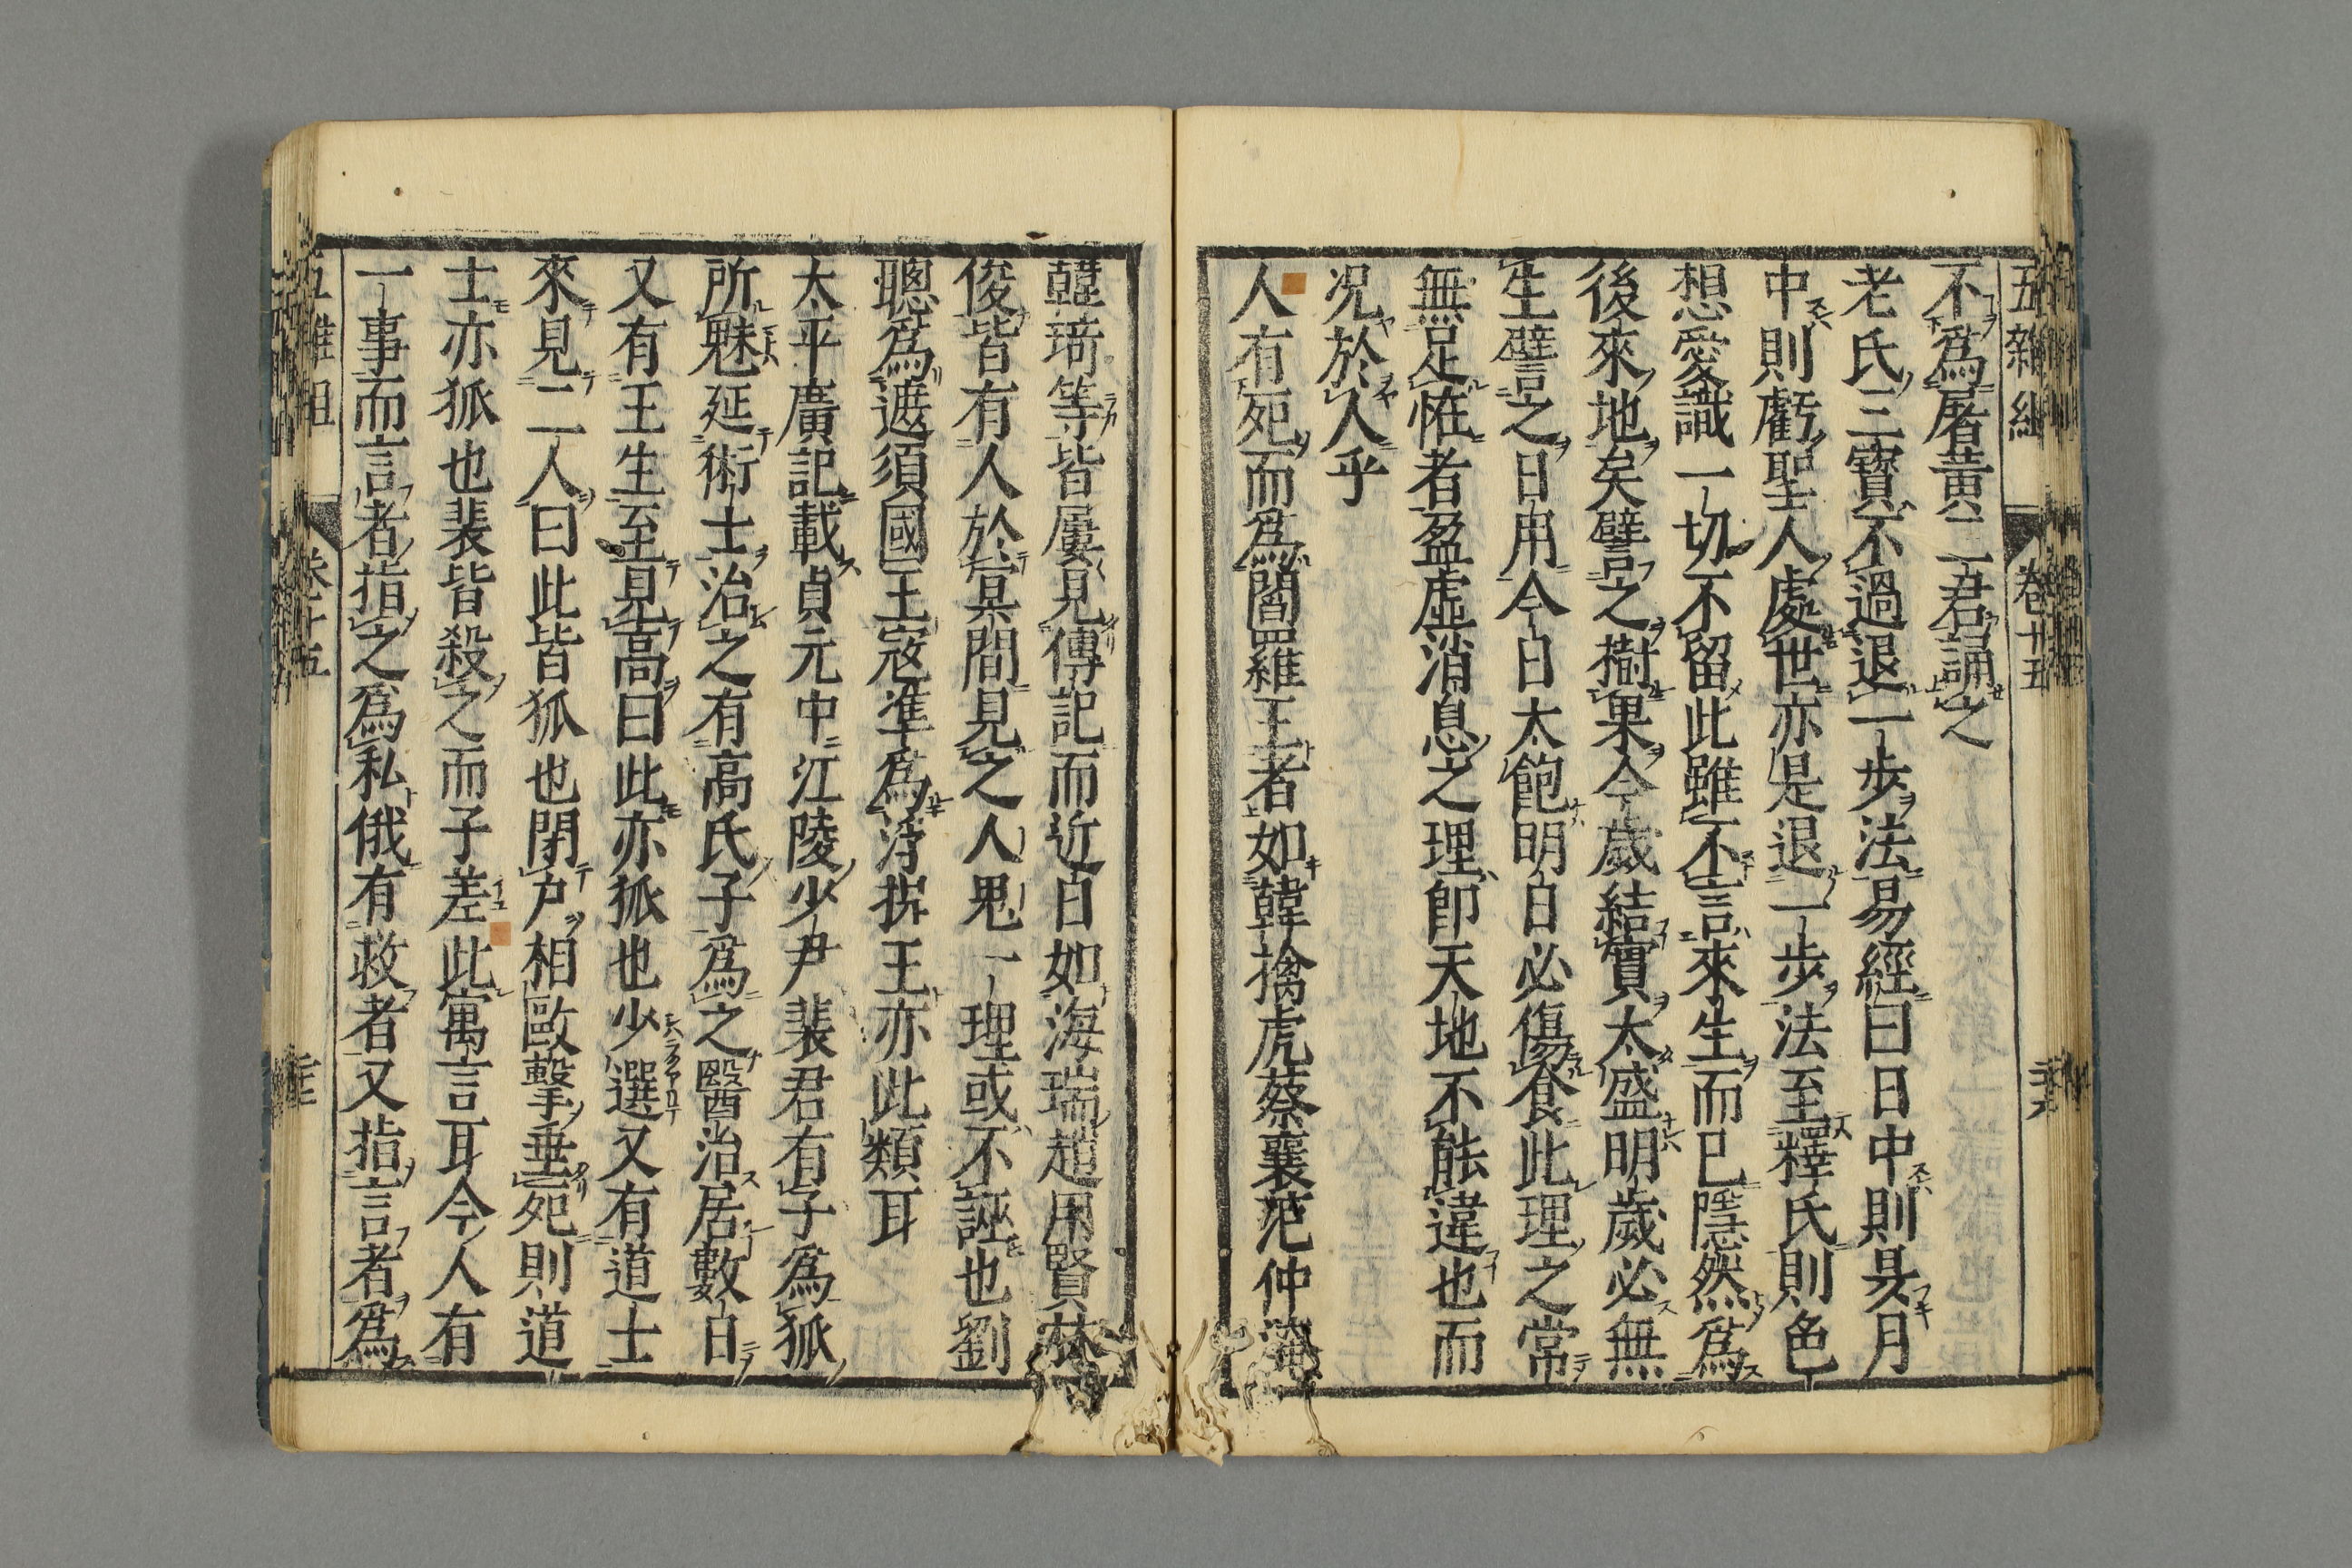 五雜組 卷十五
不爲屠黃二君誦之
老氏三寶不過退一步法易經曰日中則昃月
中則虧聖人處世亦是退一步法至釋氏則色
想愛識一切不留此雖不言來生而已隱然爲
後來地矣譬之樹果今歲結實太盛明歲必無
生譬之日用今日太飽明日必傷食此理之常
無足恠者盈虛消息之理卽天地不能違也而
况於人乎
人有死而爲閻羅王者如韓擒虎蔡襄范仲淹
韓琦等皆屢見傳記而近日如海瑞趙用賢林
俊皆有人於冥間見之人鬼一理或不誣也劉
聰爲遮須國王寇準爲浮提王亦此類耳
太平廣記載貞元中江陵少尹裴君有子爲狐
所魅延術士治之有高氏子爲之醫治居數日
又有王生至見高曰此亦狐也少選又有道士
來見二人曰此皆狐也閉戶相毆擊垂死則道
士亦狐也裴皆殺之而子差此寓言耳今人有
一事而言者指之爲私俄有救者又指言者爲
五雜組 卷十五